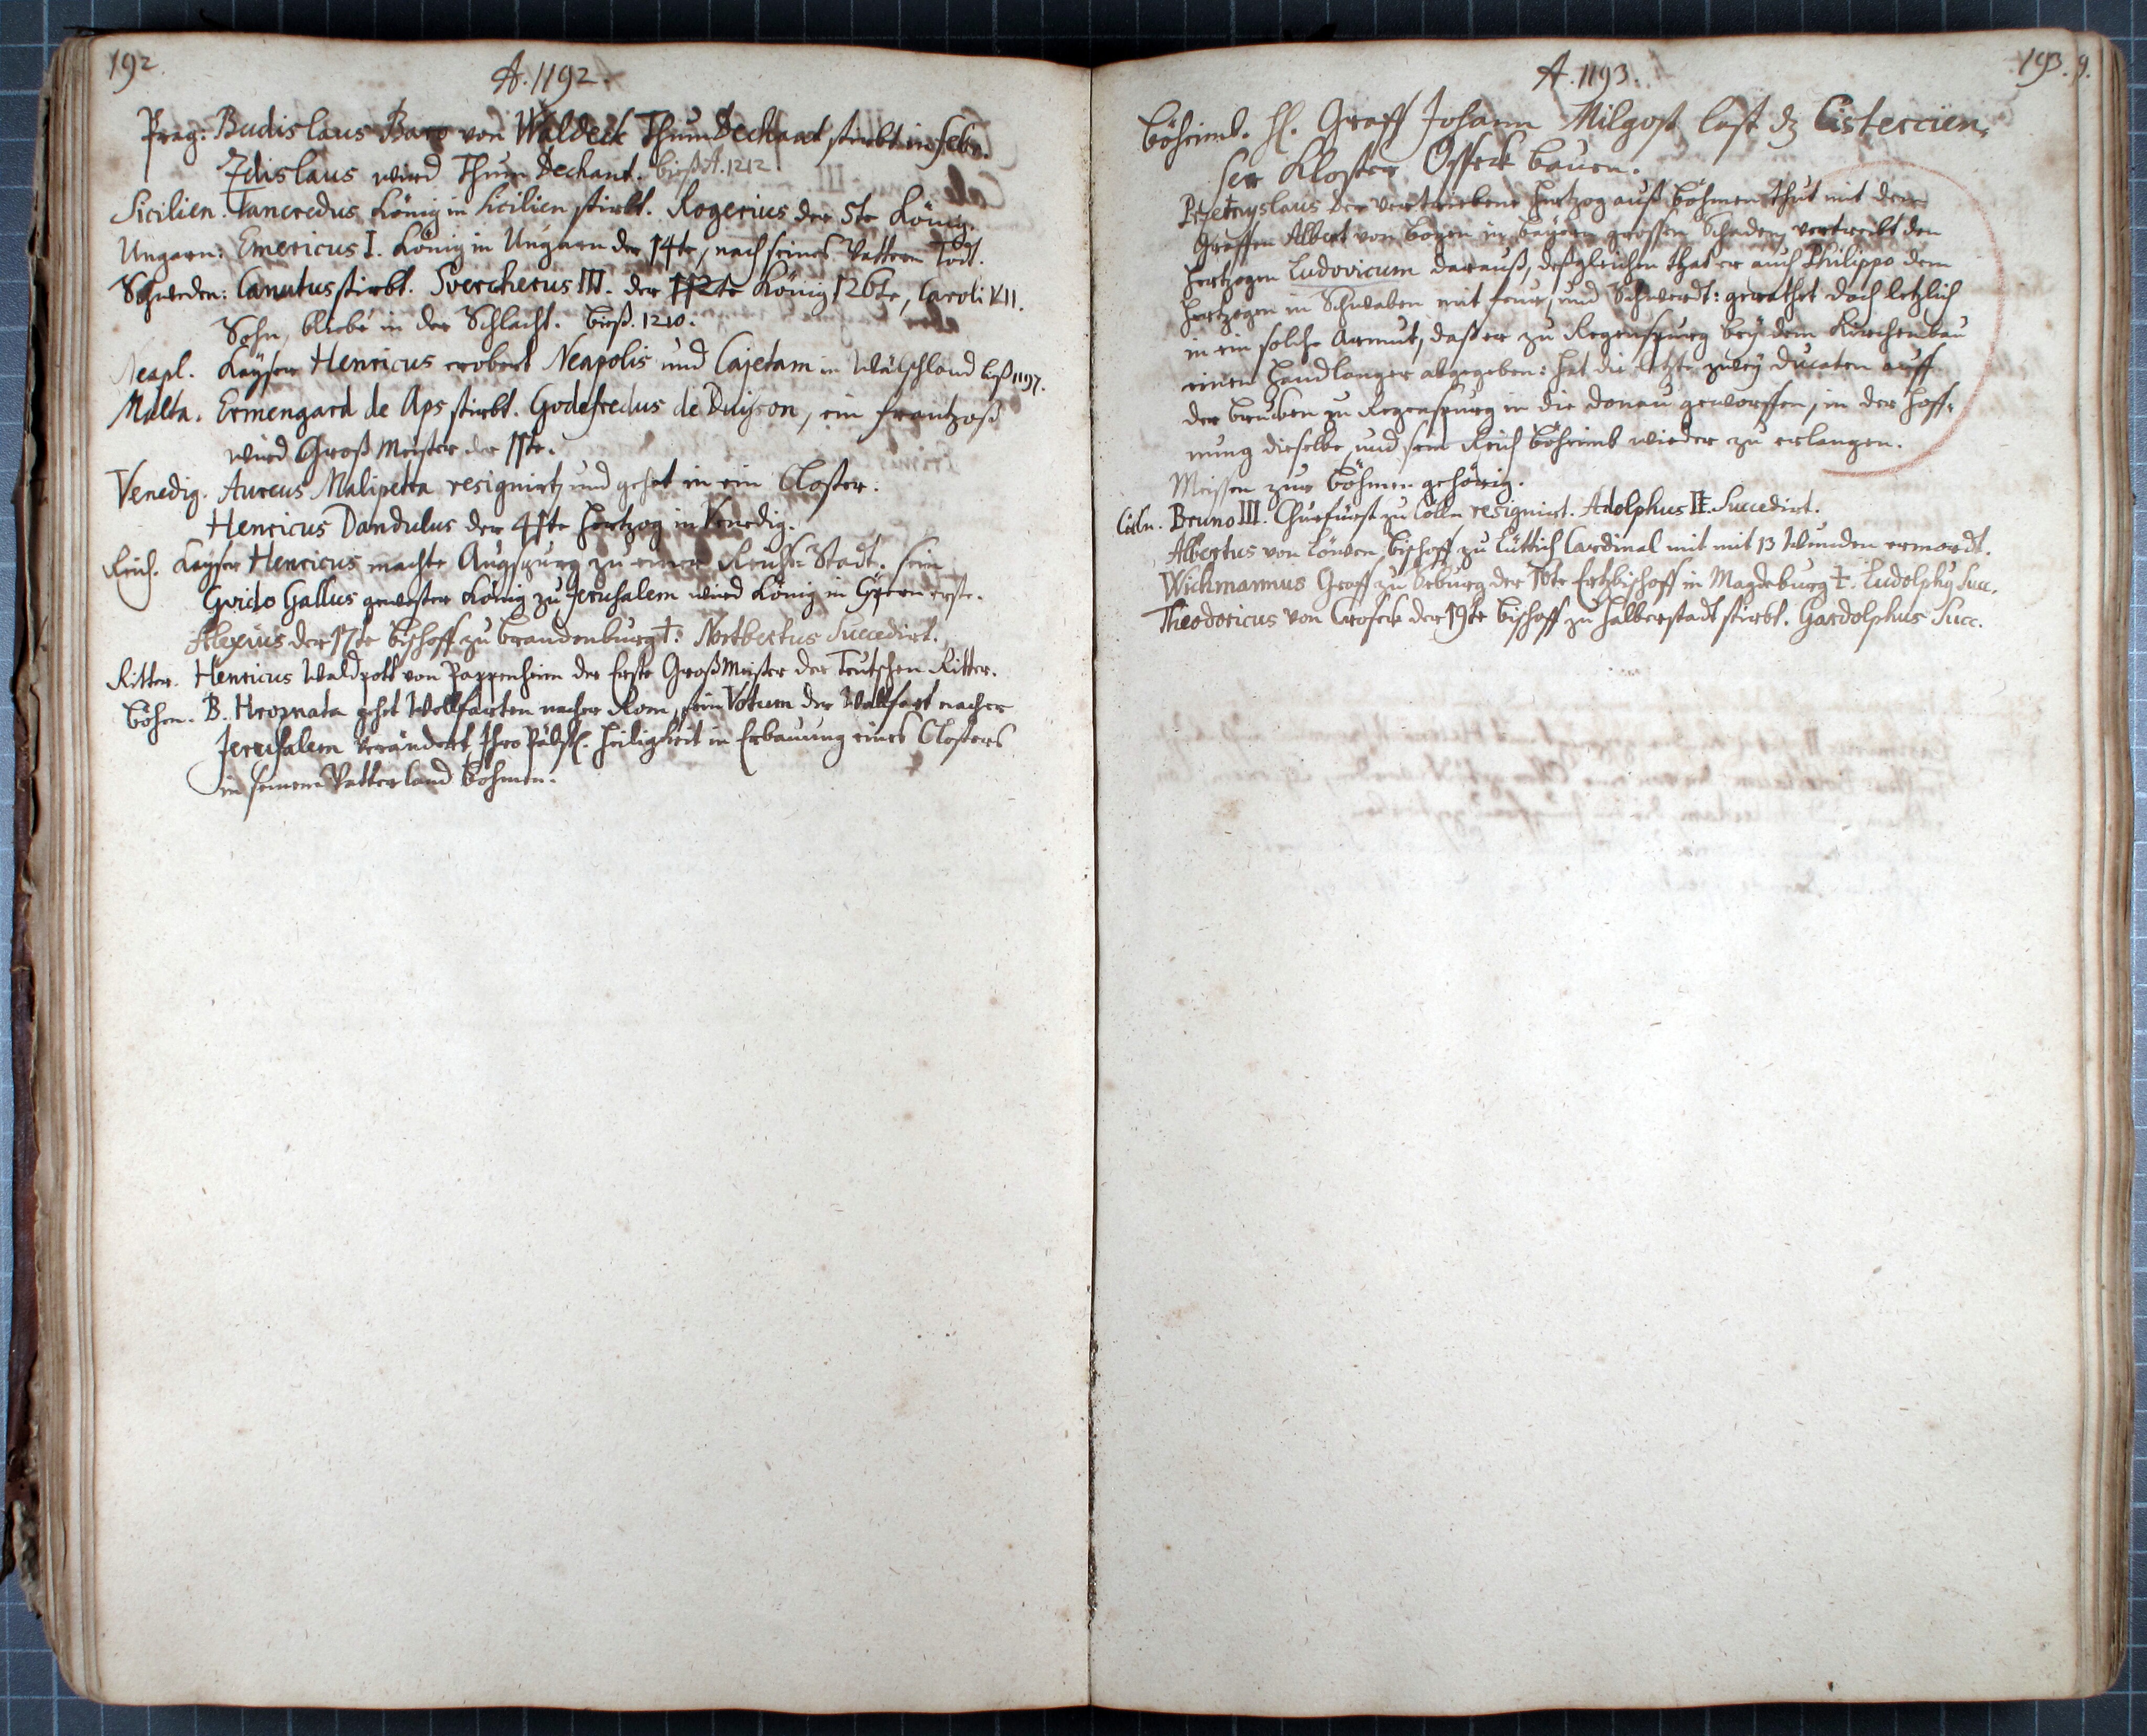 192
A. 1192.
Prag: Budislaus Baro von Waldeck Thum Dechant stirbt in Febr.
Zdislaus wird Thum Dechant. bieß A. 1212.
Sicilien. Tancredus König in Sicilien stirbt. Rogerius der 5te König.
Ungarn: Emericus I. König in Ungarn der 14te, nach seines Vattern Todt.
Schweden: Canutus stirbt. Svercherus III. der König 126te, Caroli VII.
Sohn, bliebe in der Schlacht. bieß. 1210.
Neapl. Kayser Henricus erobert Neapolis und Cajetam in Wälschland biß 1197.
Malta. Ermengard de Aps stirbt. Godefredus de Duisson, ein Frantzoß
wird Groß Meister der 11te.
Venedig. Aureus Malipetra resignirt, und gehet in ein Closter.
Henricus Dandulus der 41te Hertzog in Venedig.
Reich. Kayser Henricus machte Augspurg zu einer Reichs-Stadt.
Gvido Gallus gewester König zu Jerusalem wird König in Cypern erste.
Alexius der 17te Bischoff zu Brandenburg †. Nortbertus Succedirt.
Ritter. Henricus Waldpott von Pappenheim der Erste GroßMeister der Teutschen Ritter.
Böhm. B. Hroznata gehet Wallfarten nacher Rom, sein Votum der Wallfart nacher
Jerusalem verändert Ihro Päbstl. Heiligkeit in Erbauung eines Closters
in seinem Vatterland Böhmen.
193. 9.
A. 1193.
Böheimb. H. Graff Johann Milgost last dz Cistercien,
ser Kloster Osseck bauen.
Przemyslaus der vertriebene Hertzog auß Böhmen thut mit dem
Graffen Albert von Bogen in Bayern grossen Schaden, vertreibt den
Hertzogen Ludovicum darauß, deßgleichen that er auch Philippo dem
Hertzogen in Schwaben mit Feur, und Schwerdt: gerathet doch letzlich
in ein solche Armut, daß er zu Regenspurg bey dem Kirchenbau
einen Handlanger abgegeben: hat die letzte zwey Ducaten auff
der Brucken zu Regenspurg in die Donau geworffen, in der Hoff,
nung dieselbe, und sein Reich Böheimb wieder zu erlangen.
Meissen zur Böhmen gehörig.
Cöln. Bruno III. Churfürst zu Cölln resignirt. Adolphus Succedirt.
Albertus von Löwen, Bischoff zu Lüttich Cardinal mit mit 13 Wunden ermordt.
Wichmannus Graff zu Seburg der 16te Ertzbischoff in Magdeburg †. Ludolphus Succ.
Theodoricus von Crosek der 19te Bischoff zu Halberstadt stirbt. Gardolphus Succ.